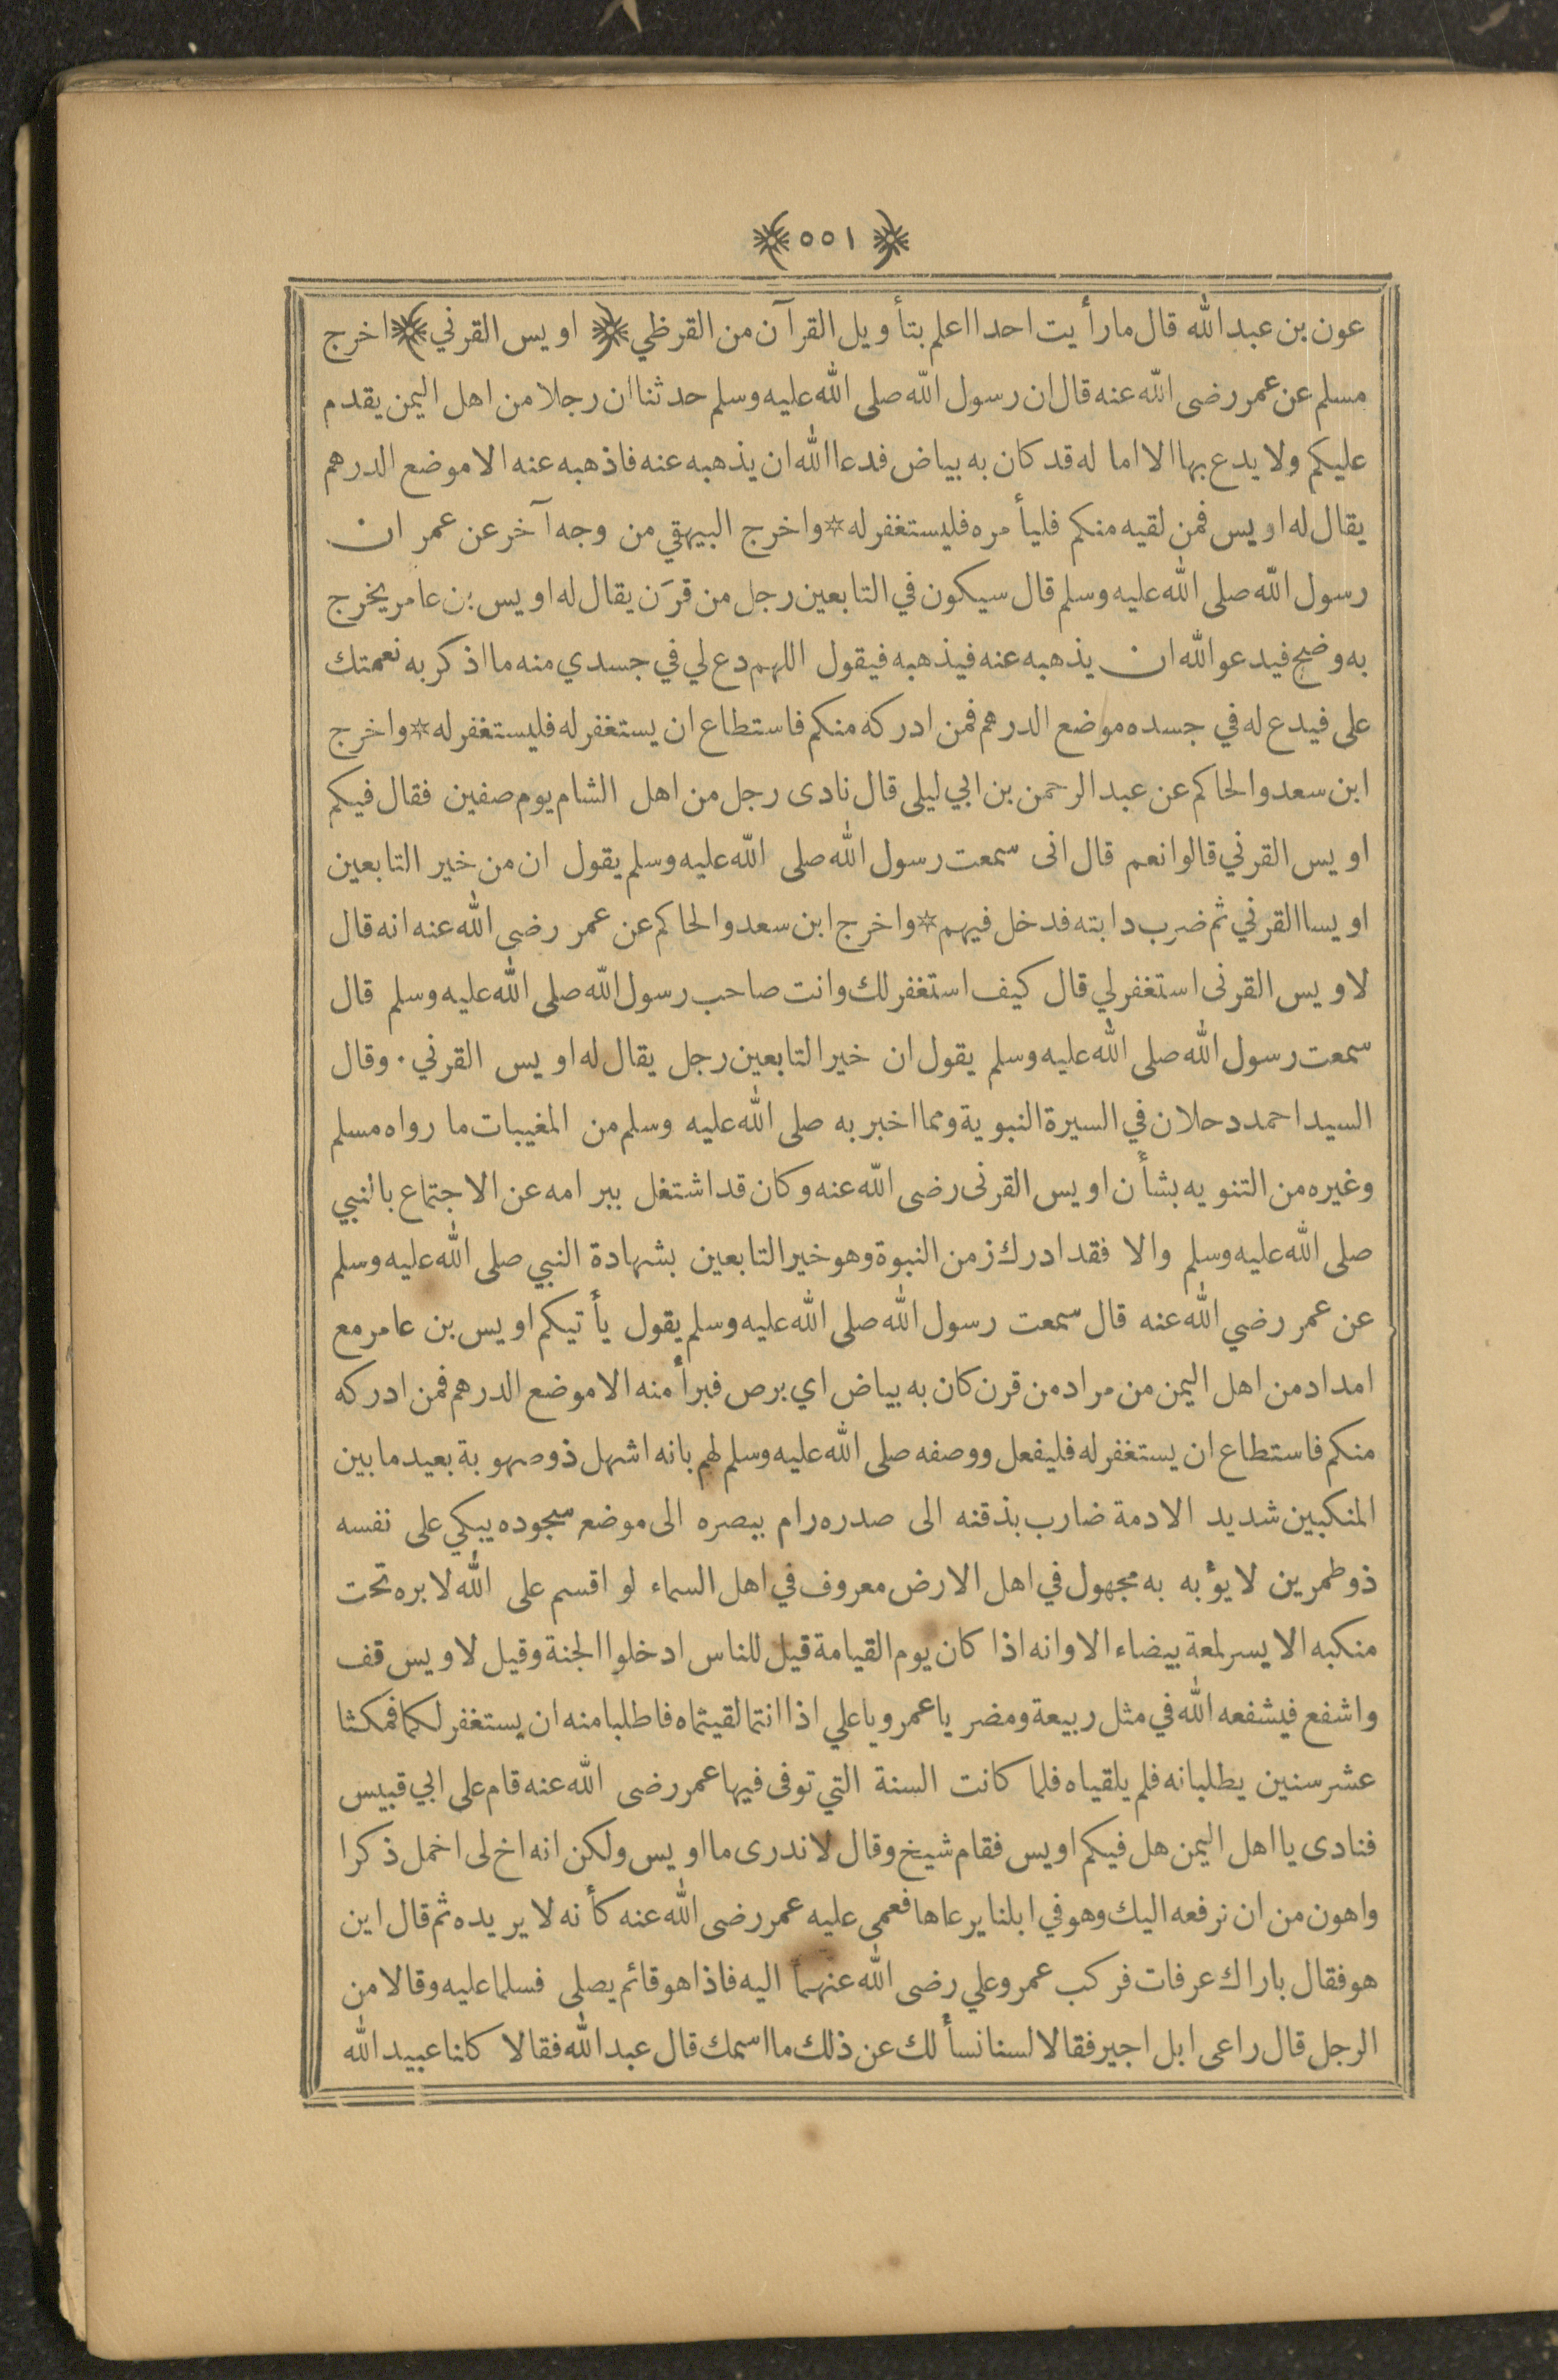 ﴿ ٥٥١ ﴾
عون بن عبد الله قال ما رأيت احدا اعلم بتأويل القرآن من القرظي ﴿ اويس القرني ﴾ اخرج
مسلم عن عمر رضى الله عنه قال ان رسول الله صلى الله عليه وسلم حدثنا ان رجلا من اهل اليمن يقدم
عليكم ولا يدع بها الا اما له قد كان به بياض فدعا الله ان يذهبه عنه فاذهبه عنه الا موضع الدرهم
يقال له اويس فمن لقيه منكم فليأمره فليستغفر له * واخرج البيهقي من وجه آخر عن عمر ان
رسول الله صلى الله عليه وسلم قال سيكون في التابعين رجل من قرَن يقال له اويس بن عامر يخرج
به وضح فيدعو الله ان يذهبه عنه فيذهبه فيقول اللهم دع لي في جسدي منه ما اذكر به نعمتك
على فيدع له في جسده موضع الدرهم فمن ادركه منكم فاستطاع ان يستغفر له فليستغفر له * واخرج
ابن سعد والحاكم عن عبد الرحمن بن ابي ليلى قال نادى رجل من اهل الشام يوم صفين فقال فيكم
اويس القرني قالوا نعم قال انى سمعت رسول الله صلى الله عليه وسلم يقول ان من خير التابعين
اويسا القرني ثم ضرب دابته فدخل فيهم * واخرج ابن سعد والحاكم عن عمر رضى الله عنه انه قال
لاويس القرنى استغفر لي قال كيف استغفر لك وانت صاحب رسول الله صلى الله عليه وسلم قال
سمعت رسول الله صلى الله عليه وسلم يقول ان خير التابعين رجل يقال له اويس القرني . وقال
السيد احمد دحلان في السيرة النبوية ومما اخبر به صلى الله عليه وسلم من المغيبات ما رواه مسلم
وغيره من التنويه بشأن اويس القرنى رضى الله عنه وكان قد اشتغل ببر امه عن الاجتماع بالنبي
صلى الله عليه وسلم والا فقد ادرك زمن النبوة وهو خير التابعين بشهادة النبي صلى الله عليه وسلم
عن عمر رضي الله عنه قال سمعت رسول الله صلى الله عليه وسلم يقول يأتيكم اويس بن عامر مع
امداد من اهل اليمن من مراد من قرن كان به بياض اي برص فبرأ منه الا موضع الدرهم فمن ادركه
منكم فاستطاع ان يستغفر له فليفعل ووصفه صلى الله عليه وسلم لهم بانه اشهل ذو صهوبة بعيد ما بين
المنكبين شديد الادمة ضارب بذقنه الى صدره رام ببصره الى موضع سجوده يبكي على نفسه
ذو طمرين لا يؤبه به مجهول في اهل الارض معروف في اهل السماء لو اقسم على الله لابره تحت
منكبه الايسر لمعة بيضاء الا وانه اذا كان يوم القيامة قيل للناس ادخلوا الجنة وقيل لاويس قف
واشفع فيشفعه الله في مثل ربيعة ومضر يا عمر ويا علي اذا انتما لقيتماه فاطلبا منه ان يستغفر لكما فمكثا
عشر سنين يطلبانه فلم يلقياه فلما كانت السنة التي توفى فيها عمر رضى الله عنه قام على ابي قبيس
فنادى يا اهل اليمن هل فيكم اويس فقام شيخ وقال لا ندرى ما اويس ولكن انه اخ لى اخمل ذكرا
واهون من ان نرفعه اليك وهو في ابلنا يرعاها فعمى عليه عمر رضى الله عنه كأنه لا يريده ثم قال اين
هو فقال باراك عرفات فركب عمر وعلي رضى الله عنهما اليه فاذا هو قائم يصلى فسلما عليه وقالا من
الرجل قال راعى ابل اجير فقالا لسنا نسألك عن ذلك ما اسمك قال عبد الله فقالا كلنا عبيد الله